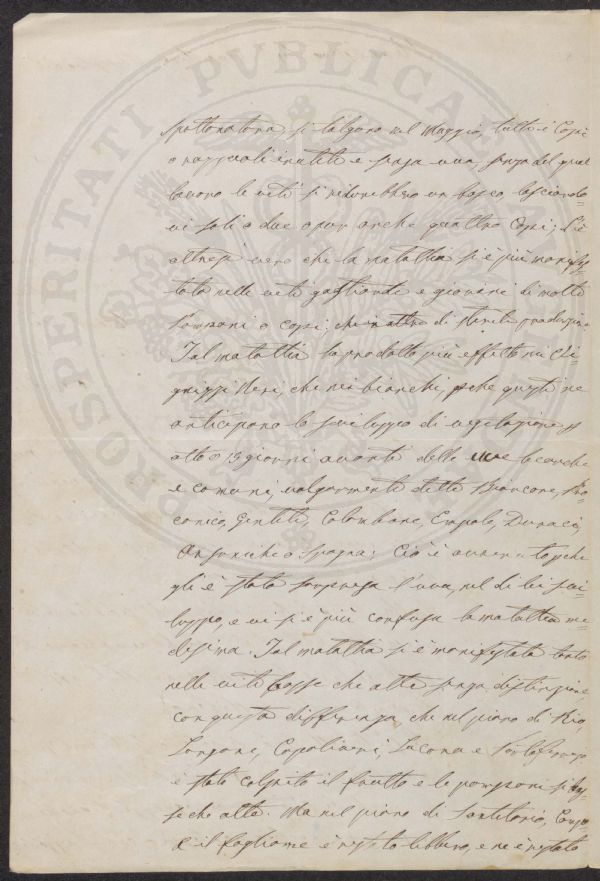 PROSPERITATI PUBLICAE AU
si tolgono nel Maggio, tutti i Capi
o inutili e senza uva, senza del qual
lavoro le viti si ridurrebbero un bosco, lasciando-
vi soli o due o pur anche quattro Capi; Si è
altresì vero che la malattia si è più manife-
stata nelle viti gagliarde e giovani di molti
o capi; che in altre di sterile produzione
Tal malattia ha prodotto più effetto nei
neri, che nei bianchi, perche questi ne
anticipano lo sviluppo di vegetazione
otto o 15 giorni avanti delle uve bianche
e comuni, volgarmente dette Biancone, Pro-
canico, Gentili, Colombane, Empolo,
Ansoniche o Spagna: Ciò è avvenuto perche
gli è stata sorpresa l'uva, nel di lei svi-
luppo, e vi si è più confusa la malattia me-
desima. Tal malattia si è manifestata tanto
nelle viti basse che alte senza distinzione
con questa differenza, che nel piano di Rio,
Longone, Capoliveri, Lacona e Portoferraio
è stato colpito il frutto e le
che alte. Ma nel piano di Campo
e il fogliame è restato libbero, e ne è restato